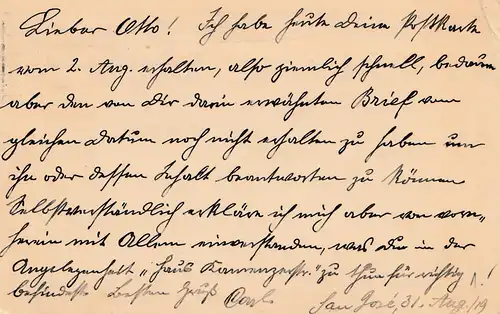 Lieber Otto! Ich habe heute Deine Postkarte
vom 2. Aug. erhalten, also ziemlich schnell, bedaure
aber den von Dir darin erwähnten Brief vom
gleichen Datum noch nicht erhalten zu haben um
ihn oder dessen Inhalt beantworten zu können
Selbstverständlich erkläre ich mich aber von vorn-
herein mit Allem einverstanden, was Du in der
Angelegenheit „Haus Kamenzerstr." zu thun für richtig
befindest. Besten Gruß Carl
San José, 31. Aug./19